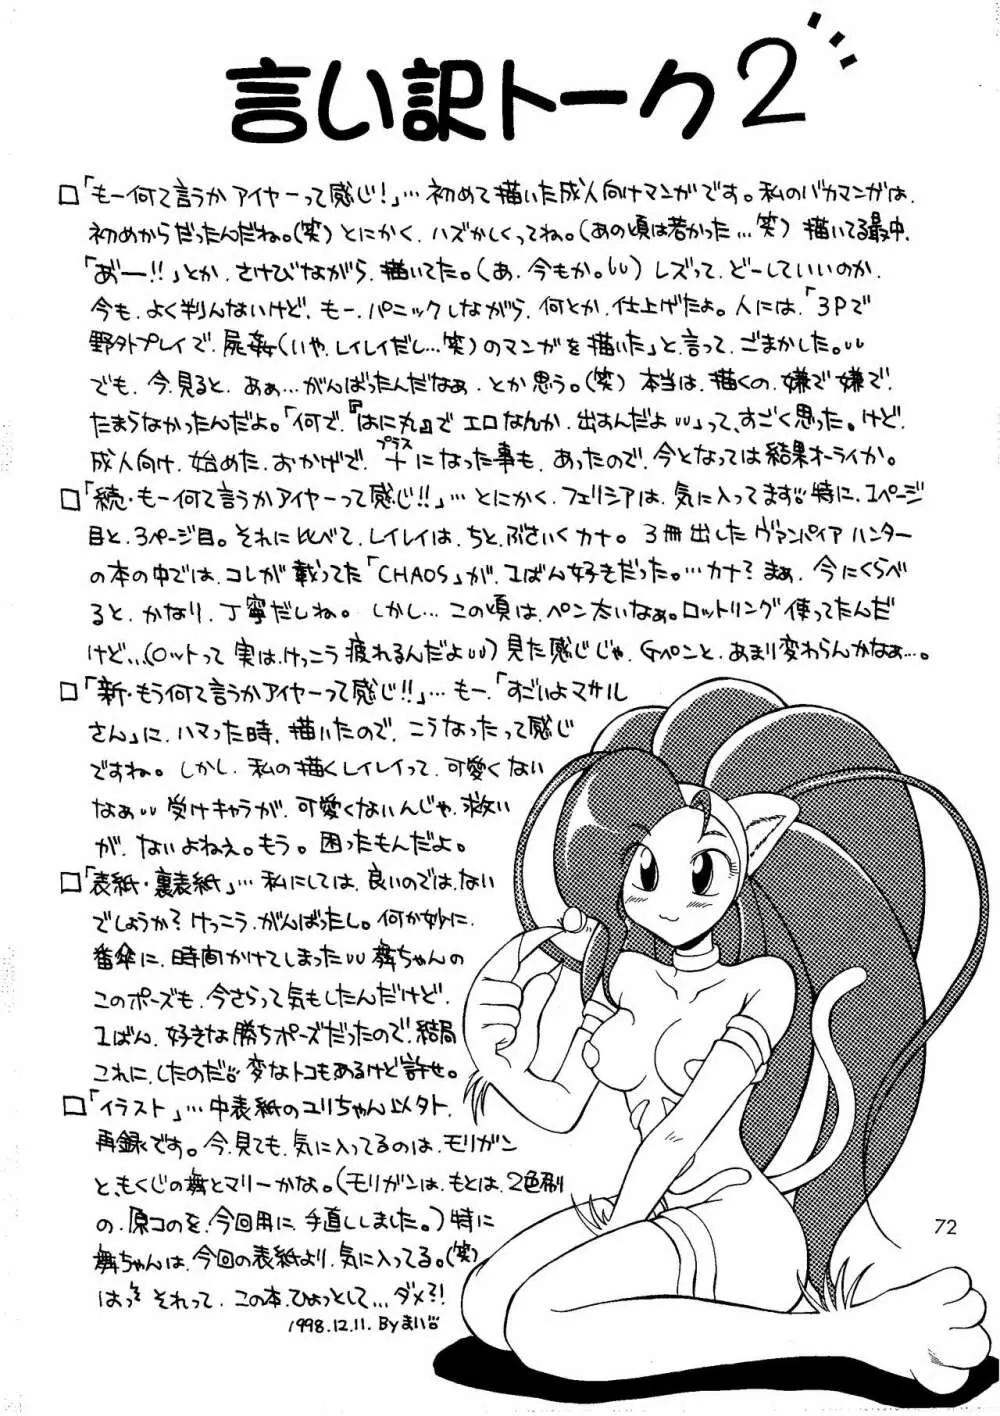 言い訳トーク2
□「もー何て言うかアイヤーって感じ!」… 初めて描いた成人向けマンガです。私のバカマンガは、
初めからだったんだね。(笑) とにかく、ハズかしくってね。(あの頃は若かった…笑) 描いてる最中、
「あ゛ー!!」とか、さけびながら、描いてた。(あ、今もか。) レズって、どーしていいのか、
今も、よく判んないけど、もー、パニックしながら、何とか、仕上げたよ。人には、「3Pで
野外プレイで、屍姦(いや、レイレイだし…笑)のマンガを描いた」と、言って、ごまかした。
でも、今、見ると、あぁ…がんばったんだなぁ、とか思う。(笑) 本当は、描くの、嫌で嫌で、
たまらなかったんだよ。「何で、『はに丸』で エロなんか、出すんだよ」って、すごく思った。けど、
成人向け、始めた、おかげで、+プラスになった事も、あったので、今となっては結果オーライか。
□「続・もー何て言うかアイヤーって感じ!!」… とにかく、フェリシアは、気に入ってます 特に、1ページ
目と、3ページ目。それに比べて、レイレイは、ちと、ぶさいくカナ。3冊出したヴァンパイア ハンター
の本の中では、コレが載ってた「CHAOS」が、1ばん好きだった。…カナ? まぁ、今にくらべ
ると、かなり、丁寧だしね。しかし…この頃は、ペン太いなぁ。ロットリング使ってたんだ
けど…(ロットって実は、けっこう疲れるんだよ) 見た感じじゃ、Gペンと、あまり変わらんかなぁ…。
□「新・もう何て言うかアイヤーって感じ!!」… もー、「すごいよマサル
さん」に、ハマった時、描いたので、こうなったって感じ
ですね。しかし、私の描くレイレイって、可愛くない
なぁ 受けキャラが、可愛くないんじゃ、救い
が、ないよねえ。もう。困ったもんだよ。
□「表紙・裏表紙」… 私にしては、良いのでは、ない
でしょうか? けっこう、がんばったし。何か妙に、
番傘に、時間かけてしまった 舞ちゃんの
このポーズも、今さらって気もしたんだけど、
1ばん、好きな勝ちポーズだったので、結局
これに、したのだ 変なトコもあるけど許せ。
□「イラスト」… 中表紙のユリちゃん以外、
再録です。今、見ても、気に入ってるのは、モリガン
と、もくじの舞とマリーかな。(モリガンは、もとは、2色刷
の、原コのを、今回用に、手直ししました。) 特に
舞ちゃんは、今回の表紙より、気に入ってる。(笑)
はっ それって、この本、ひょっとして…ダメ?!
1998.12.11. By まい
72